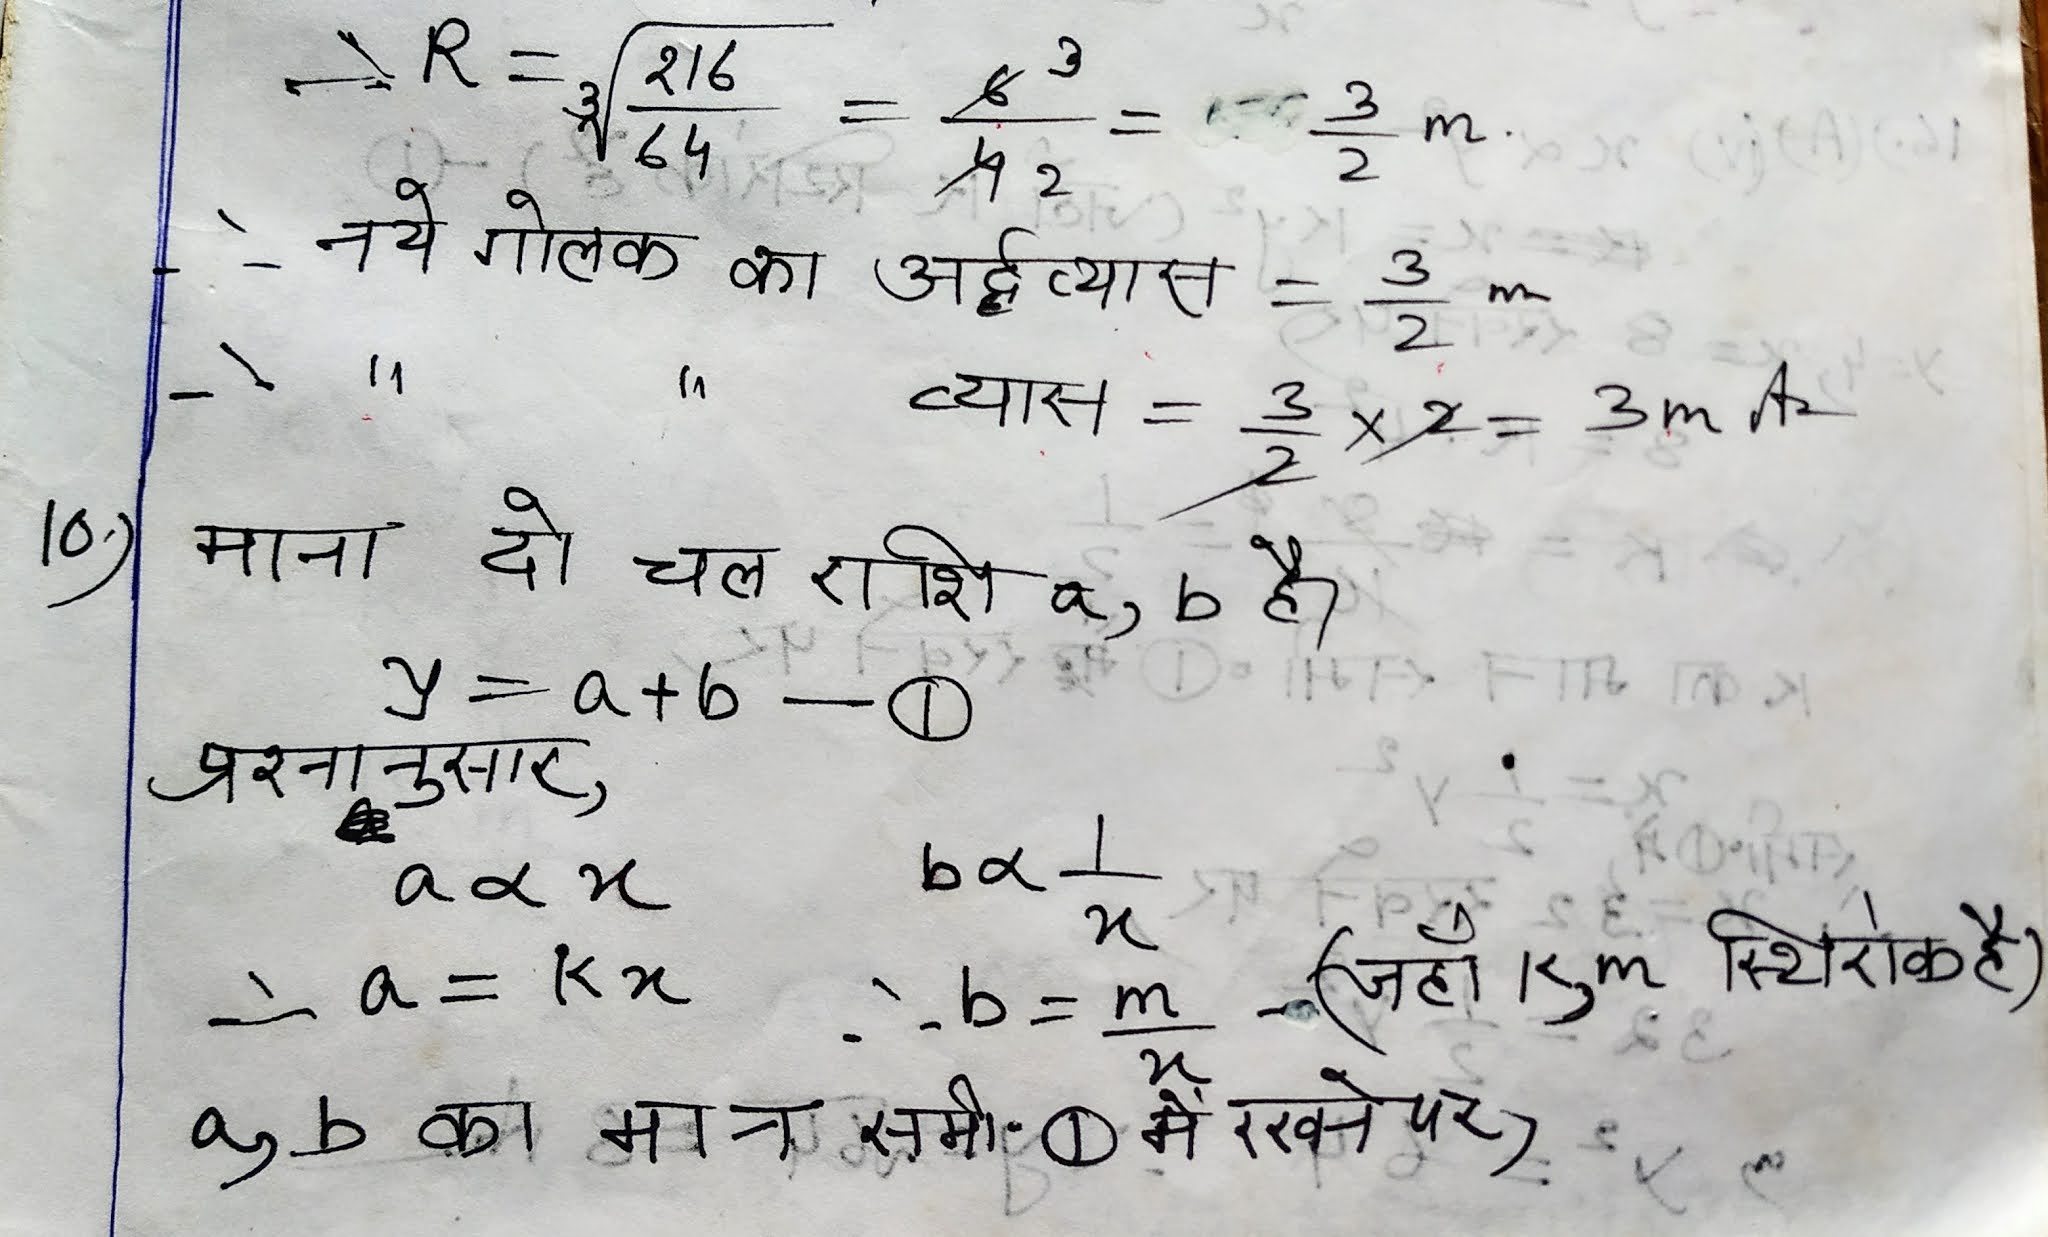 ∴ R = ∛(216/64) = 6³/4₂ = 3/2 m.
∴ नये गोलक का अर्द्धव्यास = 3/2 m
∴ " " व्यास = 3/2 × 2 = 3m A₂
10.) माना दो चल राशि a, b है,
y = a+b — ①
प्रश्नानुसार,
a ∝ x b ∝ 1/x
∴ a = Kx ∴ b = m/x - (जहाँ K, m स्थिरांक है)
a, b का मान समी. ① में रखने पर,